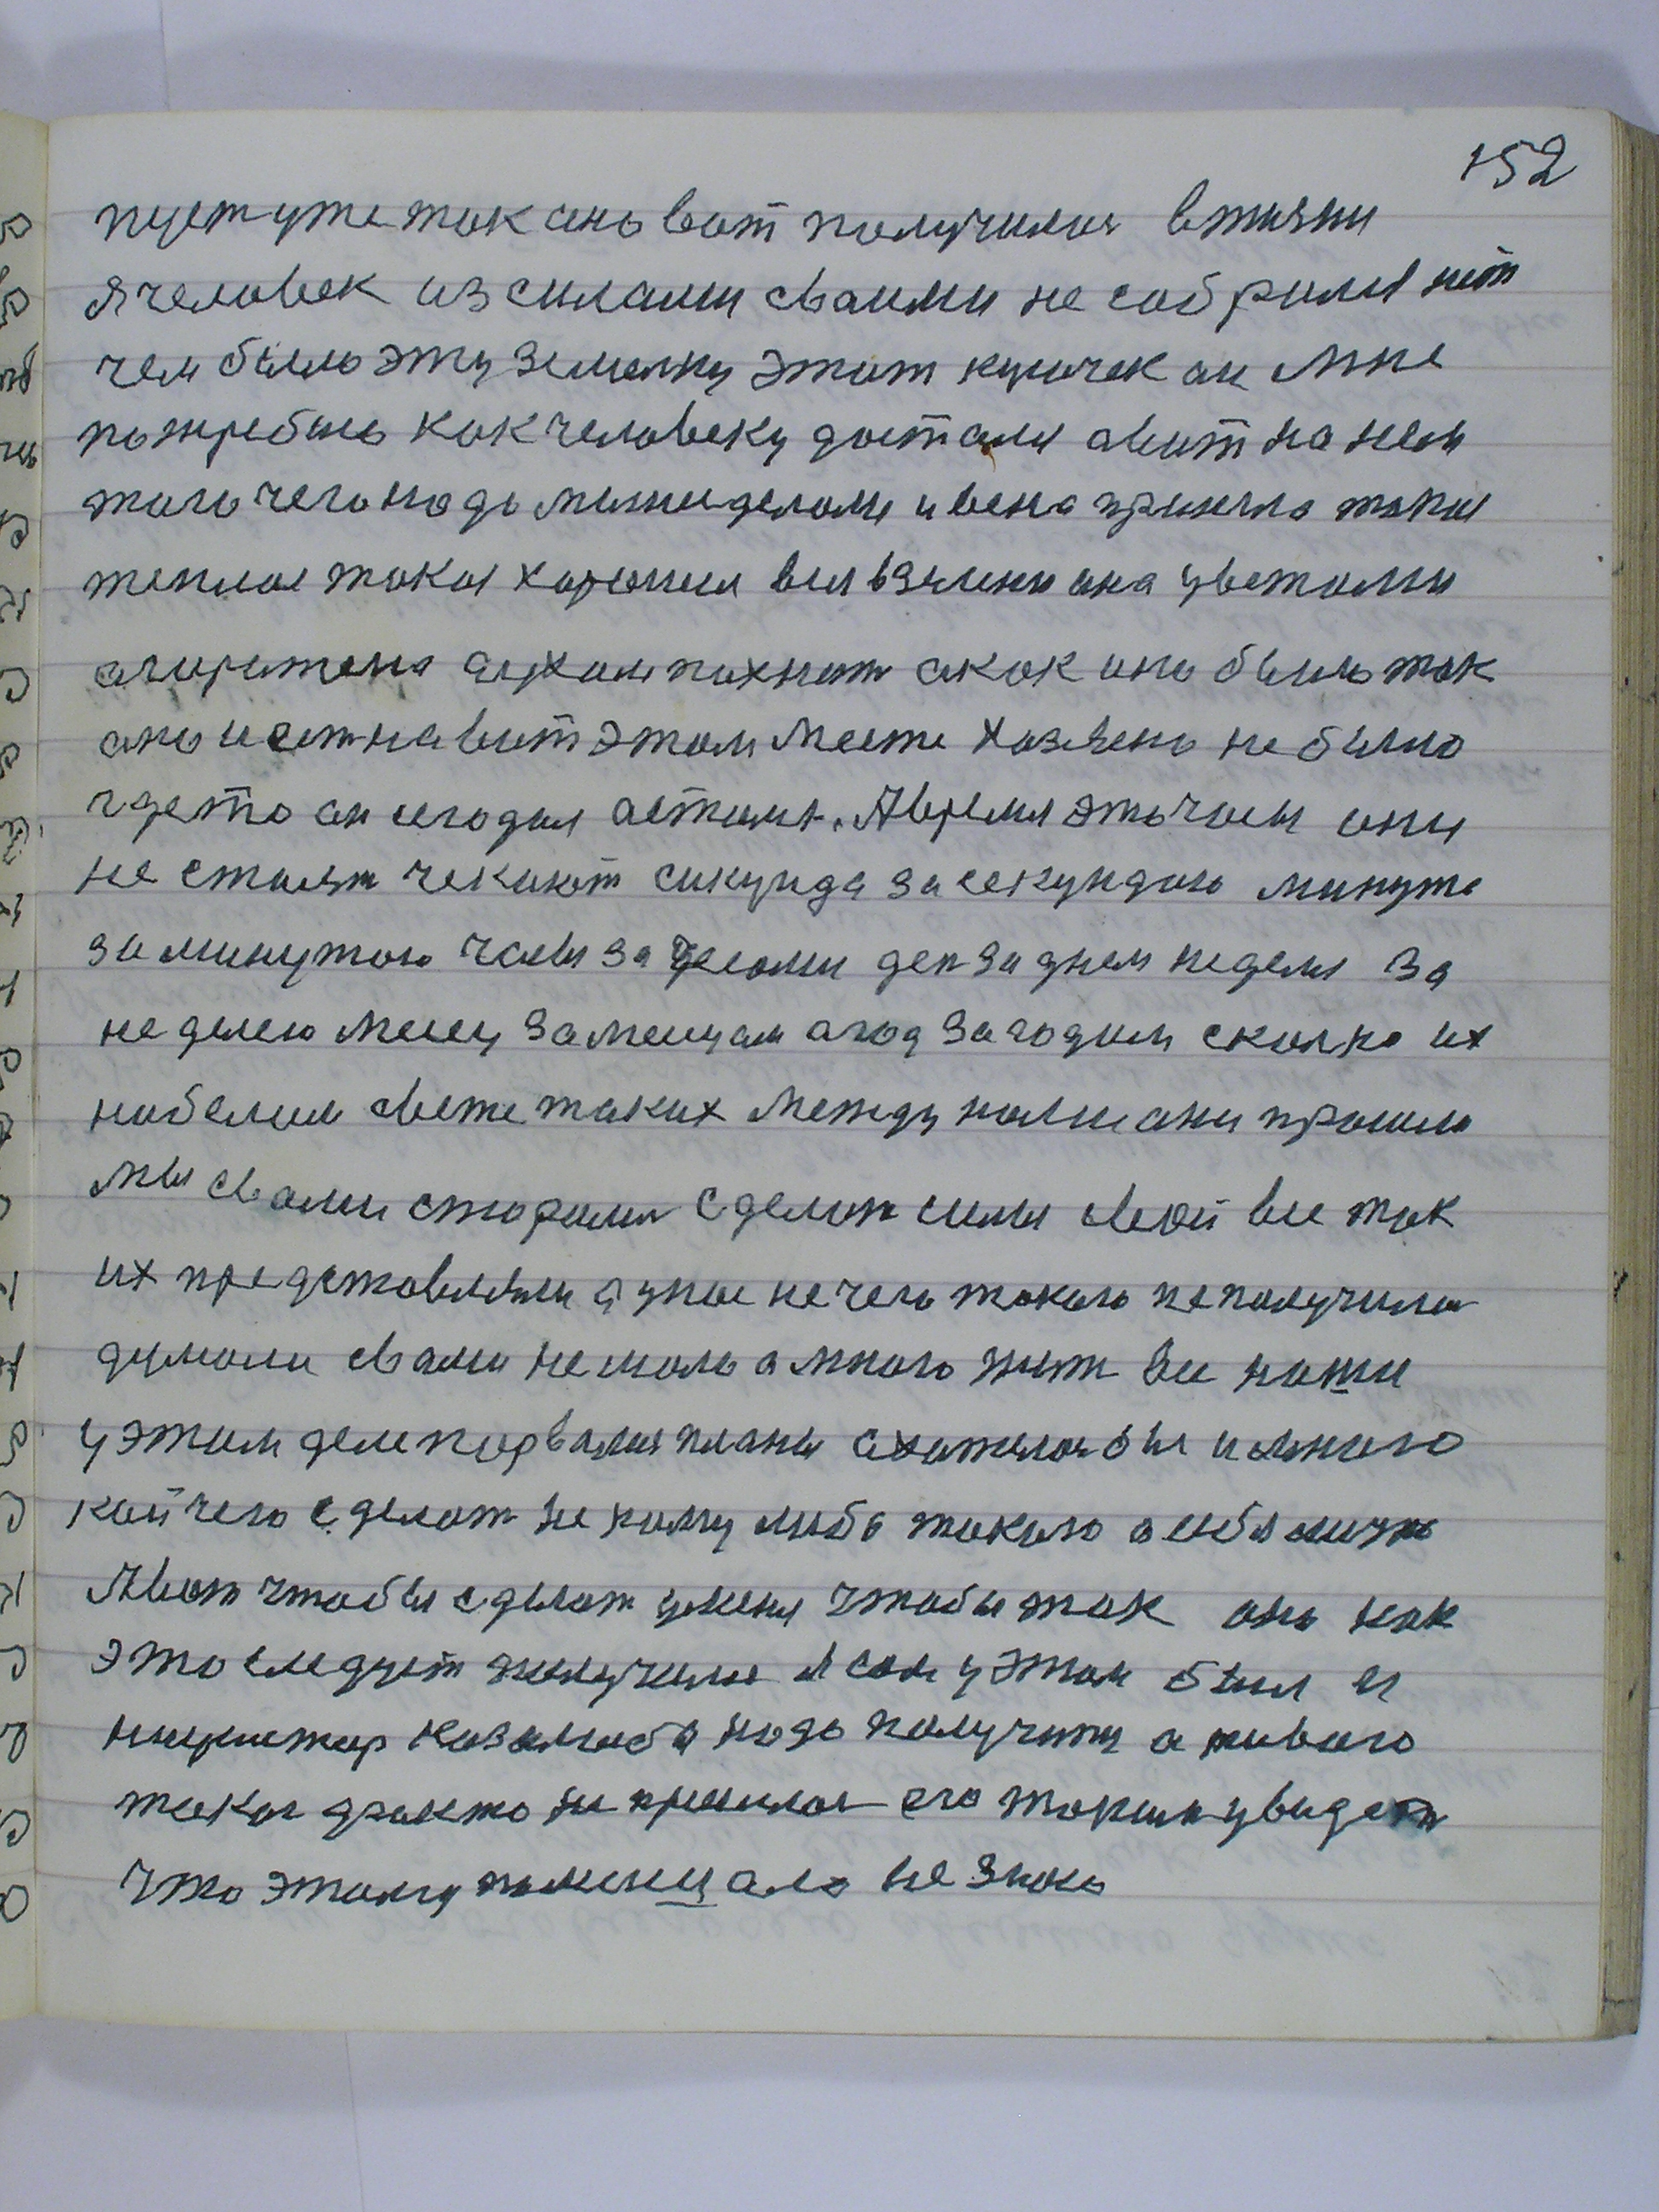 152
пуст уже так ано вот получился в жизни
я человек из силами сваими не собрался нет
чем было эту земелку этот кусочек ан мне
по жребью как человеку достался а вот на нем
того чего надо мы не делали и весна пришла такая
теплая такая хорошая вся в зелени она цветами
а духом пахнет а как оно было так
ано и ест на вот этом месте хазяено не было
где то он сегодня астался. А время это часы они
не стоят чекают сикунда за секундою минута
за минутою часы за часами ден за днем неделя за
неделею месец за месецам а год за годом сколко их
на белом свете таких между нами ани прошло
мы с вами старалис сделат силы свои все так
их представляли а у нас нечего такого не получилос
думали с вами не мало а много жит все наши
у этом деле порвалис планы а хателос бы и много
кой чего сделат не кому либо такого а себя лично
А вот чтобы сделат у меня чтобы так ано как
это следует получилос я сам у этом был и
казалось бы надо получит а живого
такого факта не пришлос его таким увидет
что этому помешало не знаю